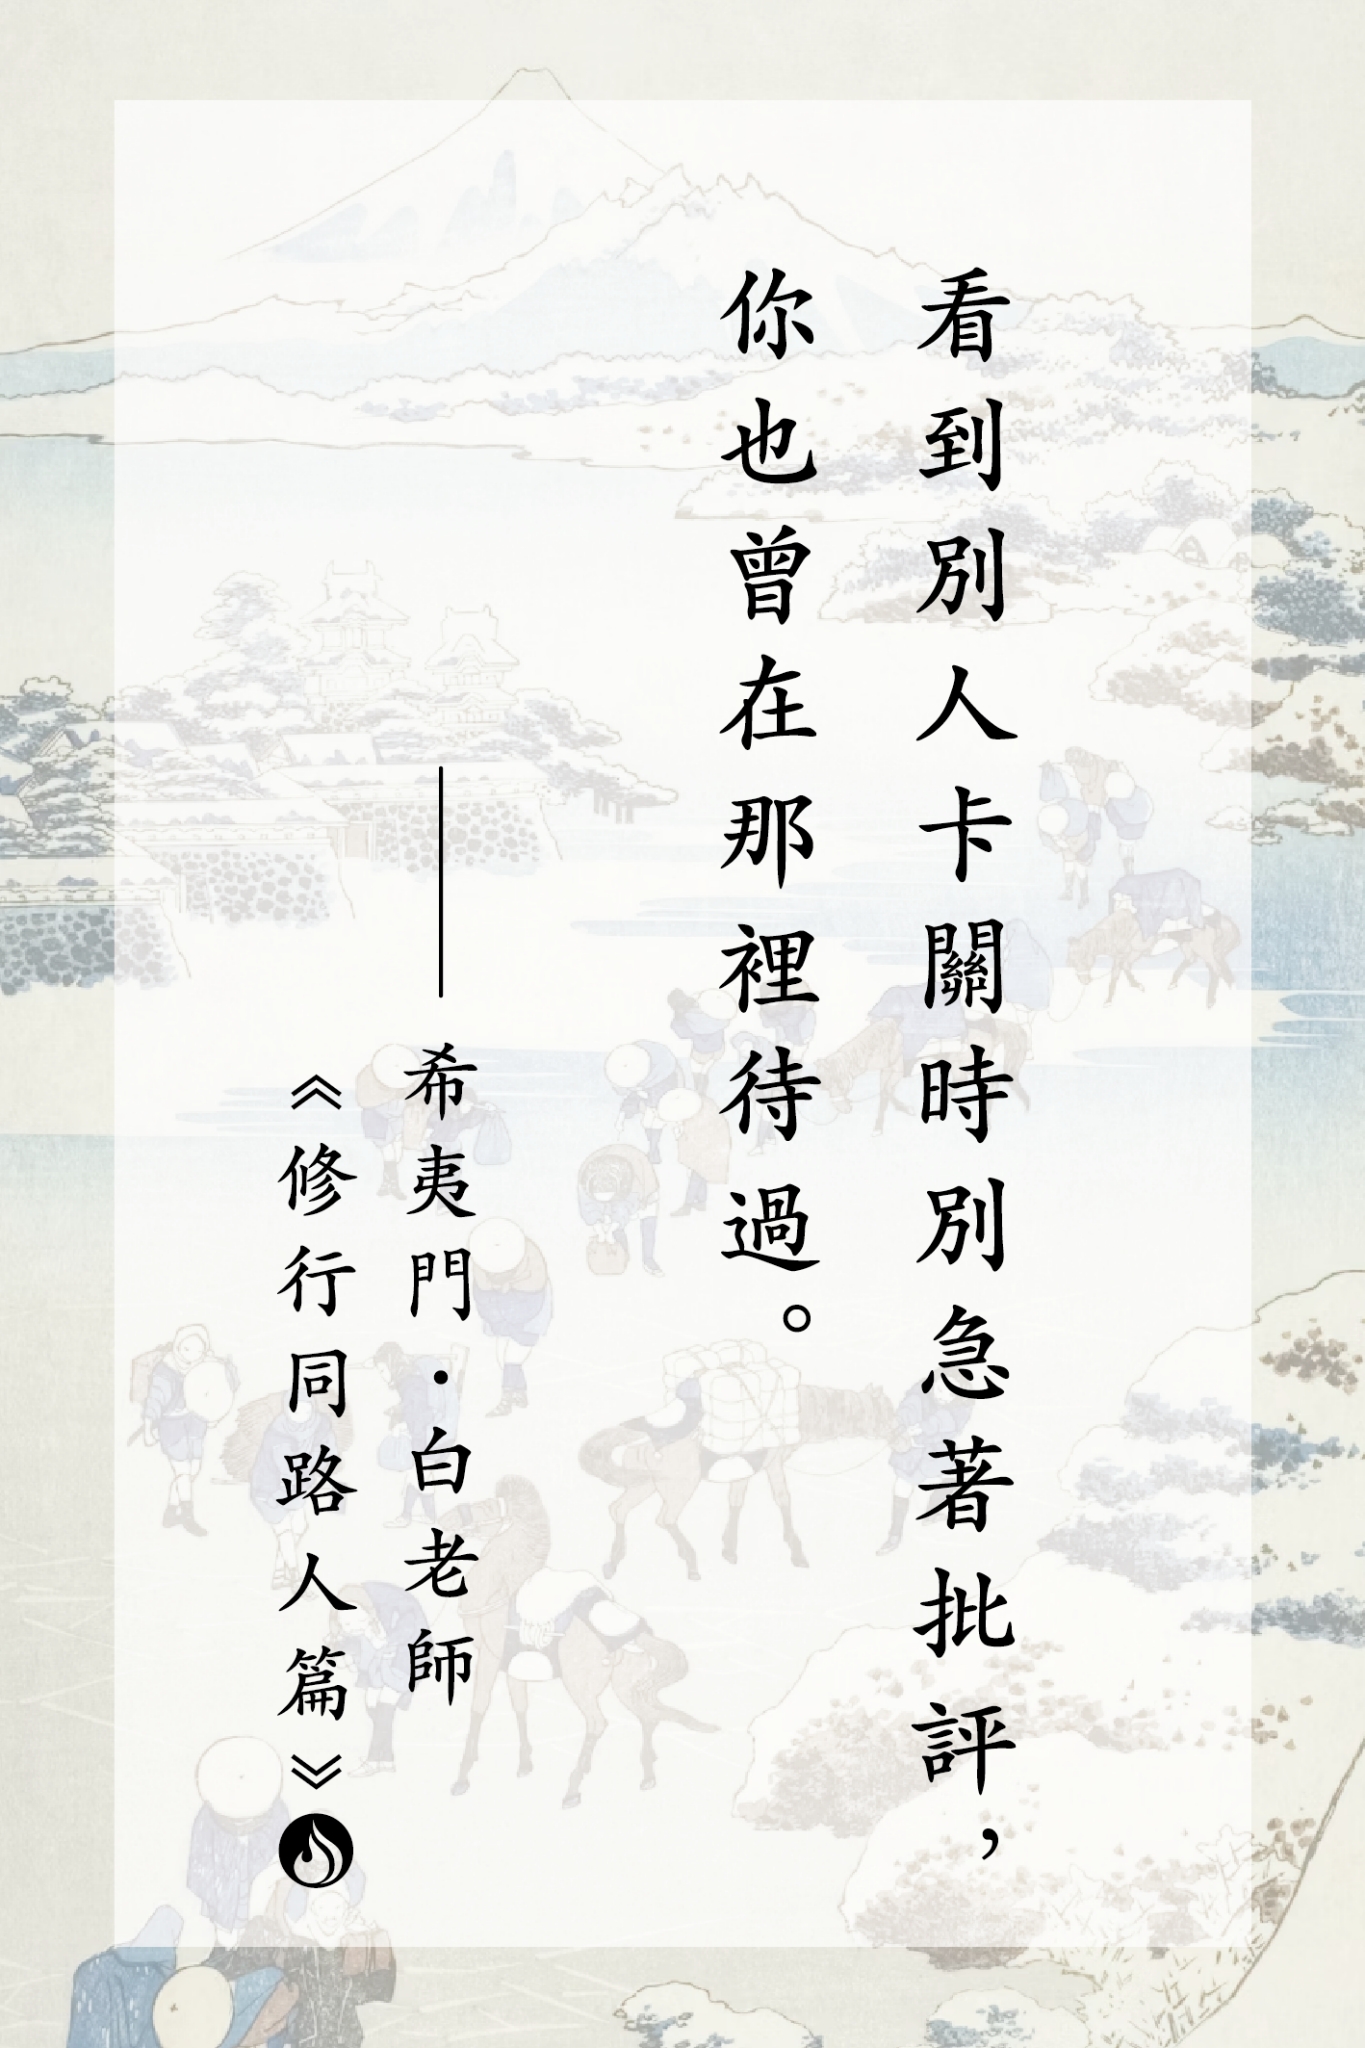 看到別人卡關時別急著批評，
你也曾在那裡待過。
——希夷門·白老師
《修行同路人篇》